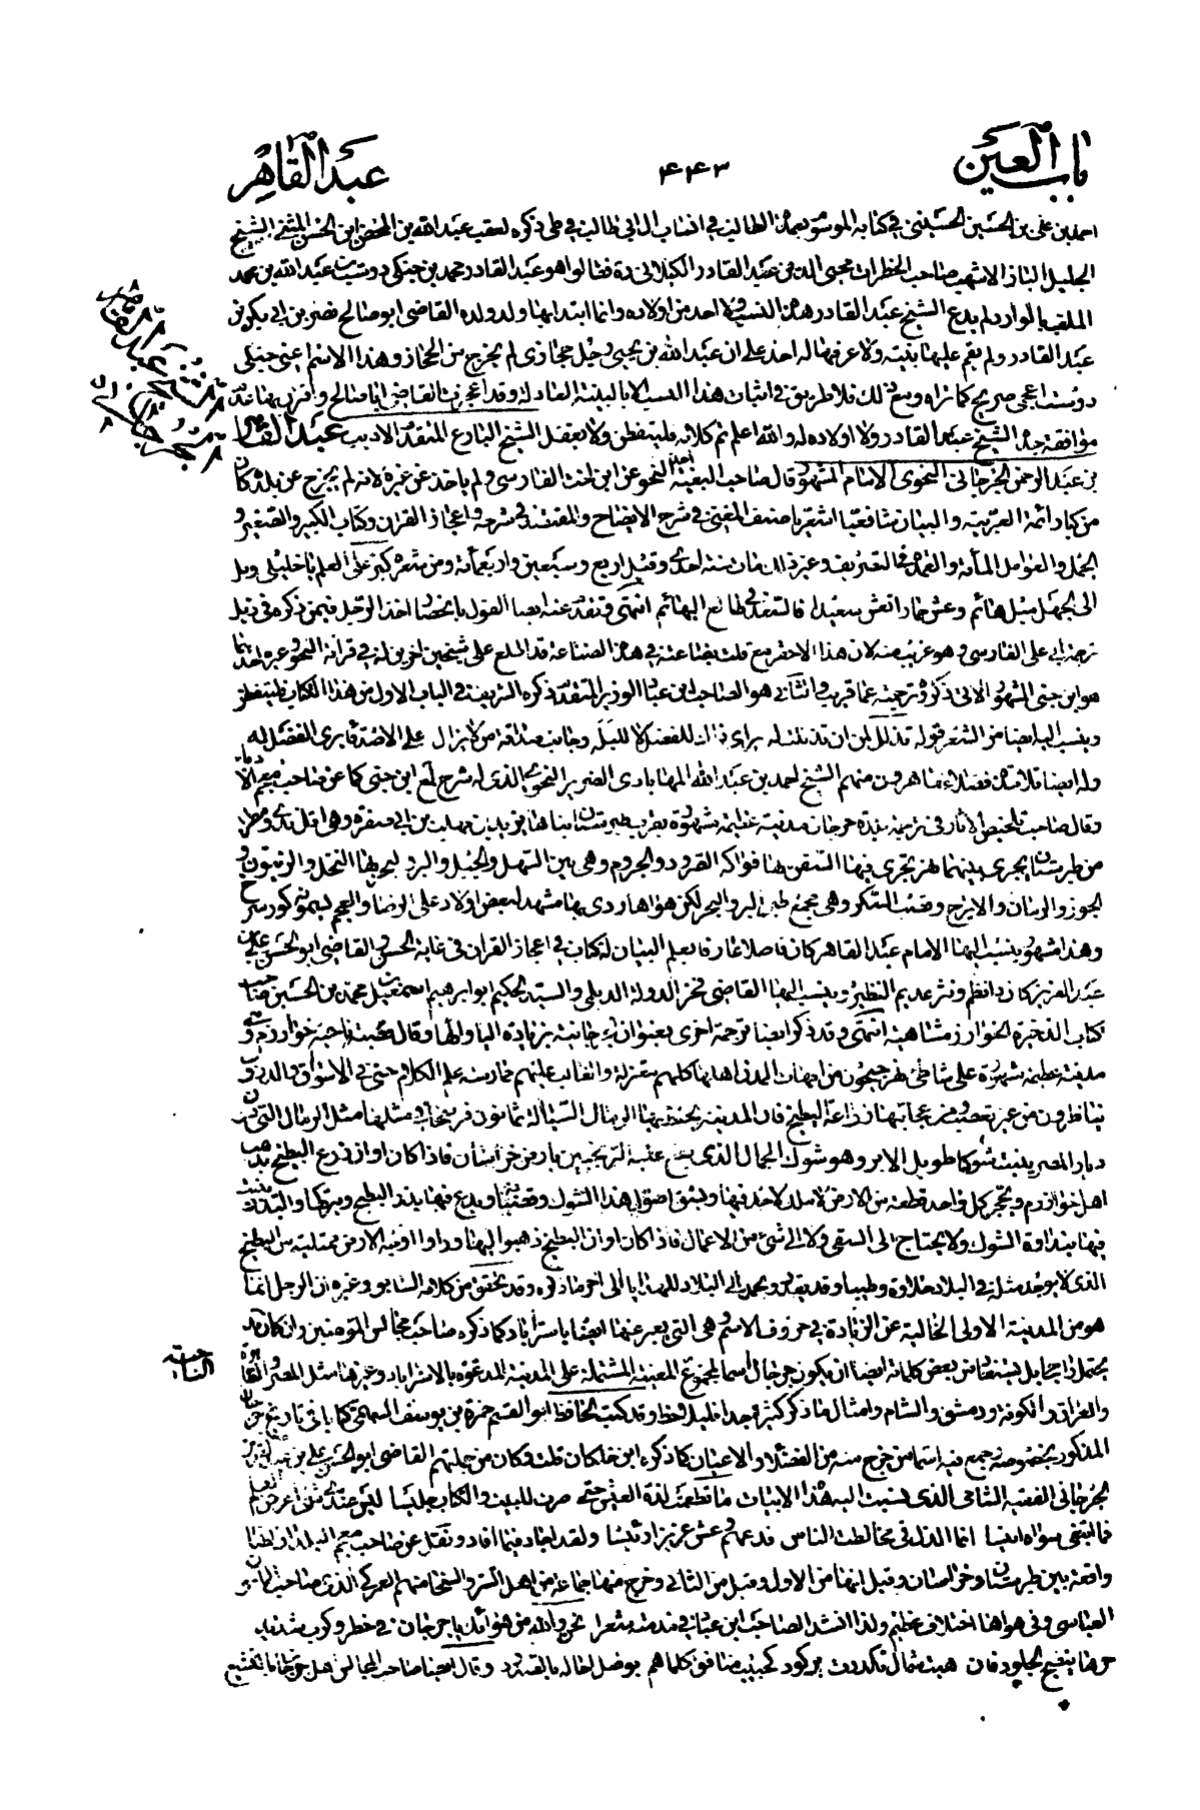 باب العين
۴۴۳
عبد القاهر
احمد بن على بن الحسين الحسينى فى كتابه الموسوم بعمدة الطالب فى انساب ال ابى طالب فى طى ذكره لعقب عبد الله بن المحض ابن الحسن المثنى الشيخ
الجليل الباز الاشهب صاحب الخطرات محيى الدين عبد القادر الكيلانى ره فقالوا هو عبد القادر محمد بن جنكى دوست بن عبد الله بن محمد
الملقب بالوارد لم يدع الشيخ عبد القادر هذا النسب ولا احد من اولاده وانما ابتدا بها ولد ولده القاضى ابو صالح نصر بن ابى بكر بن
عبد القادر ولم يقم عليها بينة ولا عرفها له احد على ان عبد الله بن محمد بن يحيى رجل حجازى لم يخرج من الحجاز وهذا الاسم اعنى جنكى
دوست اعجمى صريح كما تراه ومع ذلك فلا طريق فى اثبات هذا النسب الا بالبينة العادلة وقد اعجزت القاضى ابا صالح واقترن بها عدم
موافقة جده الشيخ عبد القادر ولا اولاده له والله اعلم تم كلامه فليتفطن ولا يغفل الشيخ البارع المتقدم الاديب عبد القاهر
بن عبد الرحمن الجرجانى النحوى الامام المشهور قال صاحب البغية اخذ النحو عن ابن اخت الفارسى ولم ياخذ عن غيره لانه لم يخرج عن بلده كان
من كبار ائمة العربية والبيان شافعيا اشعريا صنف المغنى فى شرح الايضاح والمقتصد فى شرحه واعجاز القران وكتاب الكبير والصغير و
الجمل والعوامل المأة والعمدة فى التصريف وغير ذلك مات سنة احدى وقيل اربع وسبعين واربعمأة ومن شعره كبر على العلم يا خليلى ومل
الى الجهل ميل هائم وعش حمارا تعش سعيدا فالسعد فى طالع البهائم انتهى وتقدم عنه ايضا القول بانحصار اخذ الرجل فيمن ذكره فى ذيل
ترجمة ابى على الفارسى وهو غريب منه لان هذا الاحقر مع قلت بضاعته فى هذه الصناعة قد اطلع على شيخين اخرين له فى قرائة النحو وغيره احدهما
هو ابن جنى المشهور الاتى ذكره وترجمته عما قريب والثانى هو الصاحب ابن عباد الوزير المتقدم ذكره الشريف فى الباب الاول من هذا الكتاب فليتفطن
وينسب اليه ايضا من الشعر قوله تذلل لمن ان تذللت له يرى ذاك للفضل لا للبله وجانب صداقة من لا يزال على الاصدقاء يرى الفضل له
وله ايضا تلامذة فضلاء ماهرون منهم الشيخ احمد بن عبد الله المهابادى الضرير النحوى الذى له شرح لمع ابن جنى كما عن صاحب معجم الادباء
وقال صاحب تلخيص الاثار فى ترجمة بلدة جرجان مدينة عظيمة مشهورة بقرب طبرستان بناها يزيد بن مهلب بن ابى صفرة وهى اقل ندى ومطرا
من طبرستان يجرى بينهما نهر تجرى فيها السفن بها فواكه الصرود والجروم وهى بين السهل والجبل والبر والبحر بها النخل والزيتون و
الجوز والرمان والاترج وقصب السكر وهى مجمع طير البر والبحر لكن هواها ردى بها مشهد لبعض اولاد على الرضا والعجم ليمونه كور سرخ
وهذا مشهور ينسب اليها الامام عبد القاهر كان فاضلا عارفا بعلم البيان له كتاب فى اعجاز القران فى غاية الحسن والقاضى ابو الحسن على بن
عبد العزيز كان ذا نظم ونثر عديم النظير وينسب اليها القاضى فخر الدولة الديلمى والسيد الحكيم ابو ابراهيم اسمعيل بن محمد بن الحسين صاحب
كتاب الذخيرة الخوارزمشاهية انتهى وقد ذكر ايضا ترجمة اخرى بعنوان جرجانية بزيادة اليا والها وقال قصبة ناحية خوارزم وهى
مدينة عظيمة مشهورة على شاطئ نهر جيحون من امهات المدن اهلها كلهم معتزلة والغالب عليهم ممارسة علم الكلام حتى فى الاسواق والدروب
يناظرون من غير تعصب ومن عجائبها زراعة البطيخ فان المدينة يحيط بها الرمال السيالة ثمانون فرسخا فى مثلها مثل الرمال التى دون
ديار المصر ينبت شوكا طويل الابر وهو شوك الجمال الذى يقع عليه الترنجبين بارض خراسان فاذا كان اوان زرع البطيخ يذهب
اهل خوارزم ويتحجر كل واحد قطعة من الارض لا ملك لاحد فيها ويشق اصول هذا الشوك وقضبانها ويدع فيها بذر البطيخ ويتركها والبذر ينبت
فيها بنداوة الشوك ولا يحتاج الى السقى ولا الى شئ من الاعمال فاذا كان اوان البطيخ ذهبوا اليها وراوا وجه الارض ممتلية من البطيخ
الذى لا يوجد مثله فى البلاد حلاوة وطيبا وقد يقدد ويحمل الى البلاد للهدايا الى اخر ما ذكره وقد تحقق من كلامه السابق وغيره ان الرجل انما
هو من المدينة الاولى الخالية عن الزيادة فى حروف الاسم وهى التى يعبر عنها ايضا باسترآباد كما ذكره صاحب مجالس المؤمنين وان كان قد
يحتمل راجحا بل يستفاد من بعض كلماته ايضا ان يكون جرجان اسما لمجموع المعينة المشتملة على المدينة المدعوة بالاستراباد وغيرها مثل المصر والقاهرة
والعراق والكوفة ودمشق والشام وامثال ما ذكر كثيرة جدا فليلاحظ وقد كتب الحافظ ابو القسم حمزة بن يوسف السهمى كتابا فى تاريخ جرجان
المذكور بخصوصه جمع فيه اسماء من خرج منه من الفضلاء والاعيان كما ذكره ابن خلكان قلت وكان من جملتهم القاضى ابو الحسن على بن عبد العزيز
الجرجانى الفقيه الشافعى الذى نسبت اليه هذه الابيات ما تطعمت لذة العيش حتى صرت للبيت والكتاب جليسا ليس عندى شئ اعز من العلم
فما ابتغى سواه انيسا انما الذل فى مخالطة الناس فدعهم وعش عزيزا رئيسا ولقد اجاد فيما افاد ونقل عن صاحب معجم البلدان انها
واقعة بين طبرستان وخراسان وقيل انها من الاول وقيل من الثانى وخرج منها جماعة من اهل الستر والسخا منهم العمركى الذى صاحب المامون
العباسى وفى هواها اختلاف عظيم ولذا انشد الصاحب ابن عباد فى مذمته شعرا نحن والله من هوائك يا جرجان فى خطر وكرب شديد
حرها ينضج الجلود فان هبت شمالا تكدرت بركود كحبيب منافق كلما هم بوصل احاله بالصدود وقال ايضا صاحب المجالس اهل جرجان بالتشيع
الشيخ عبد القاهر
الجرجانى
الناحية